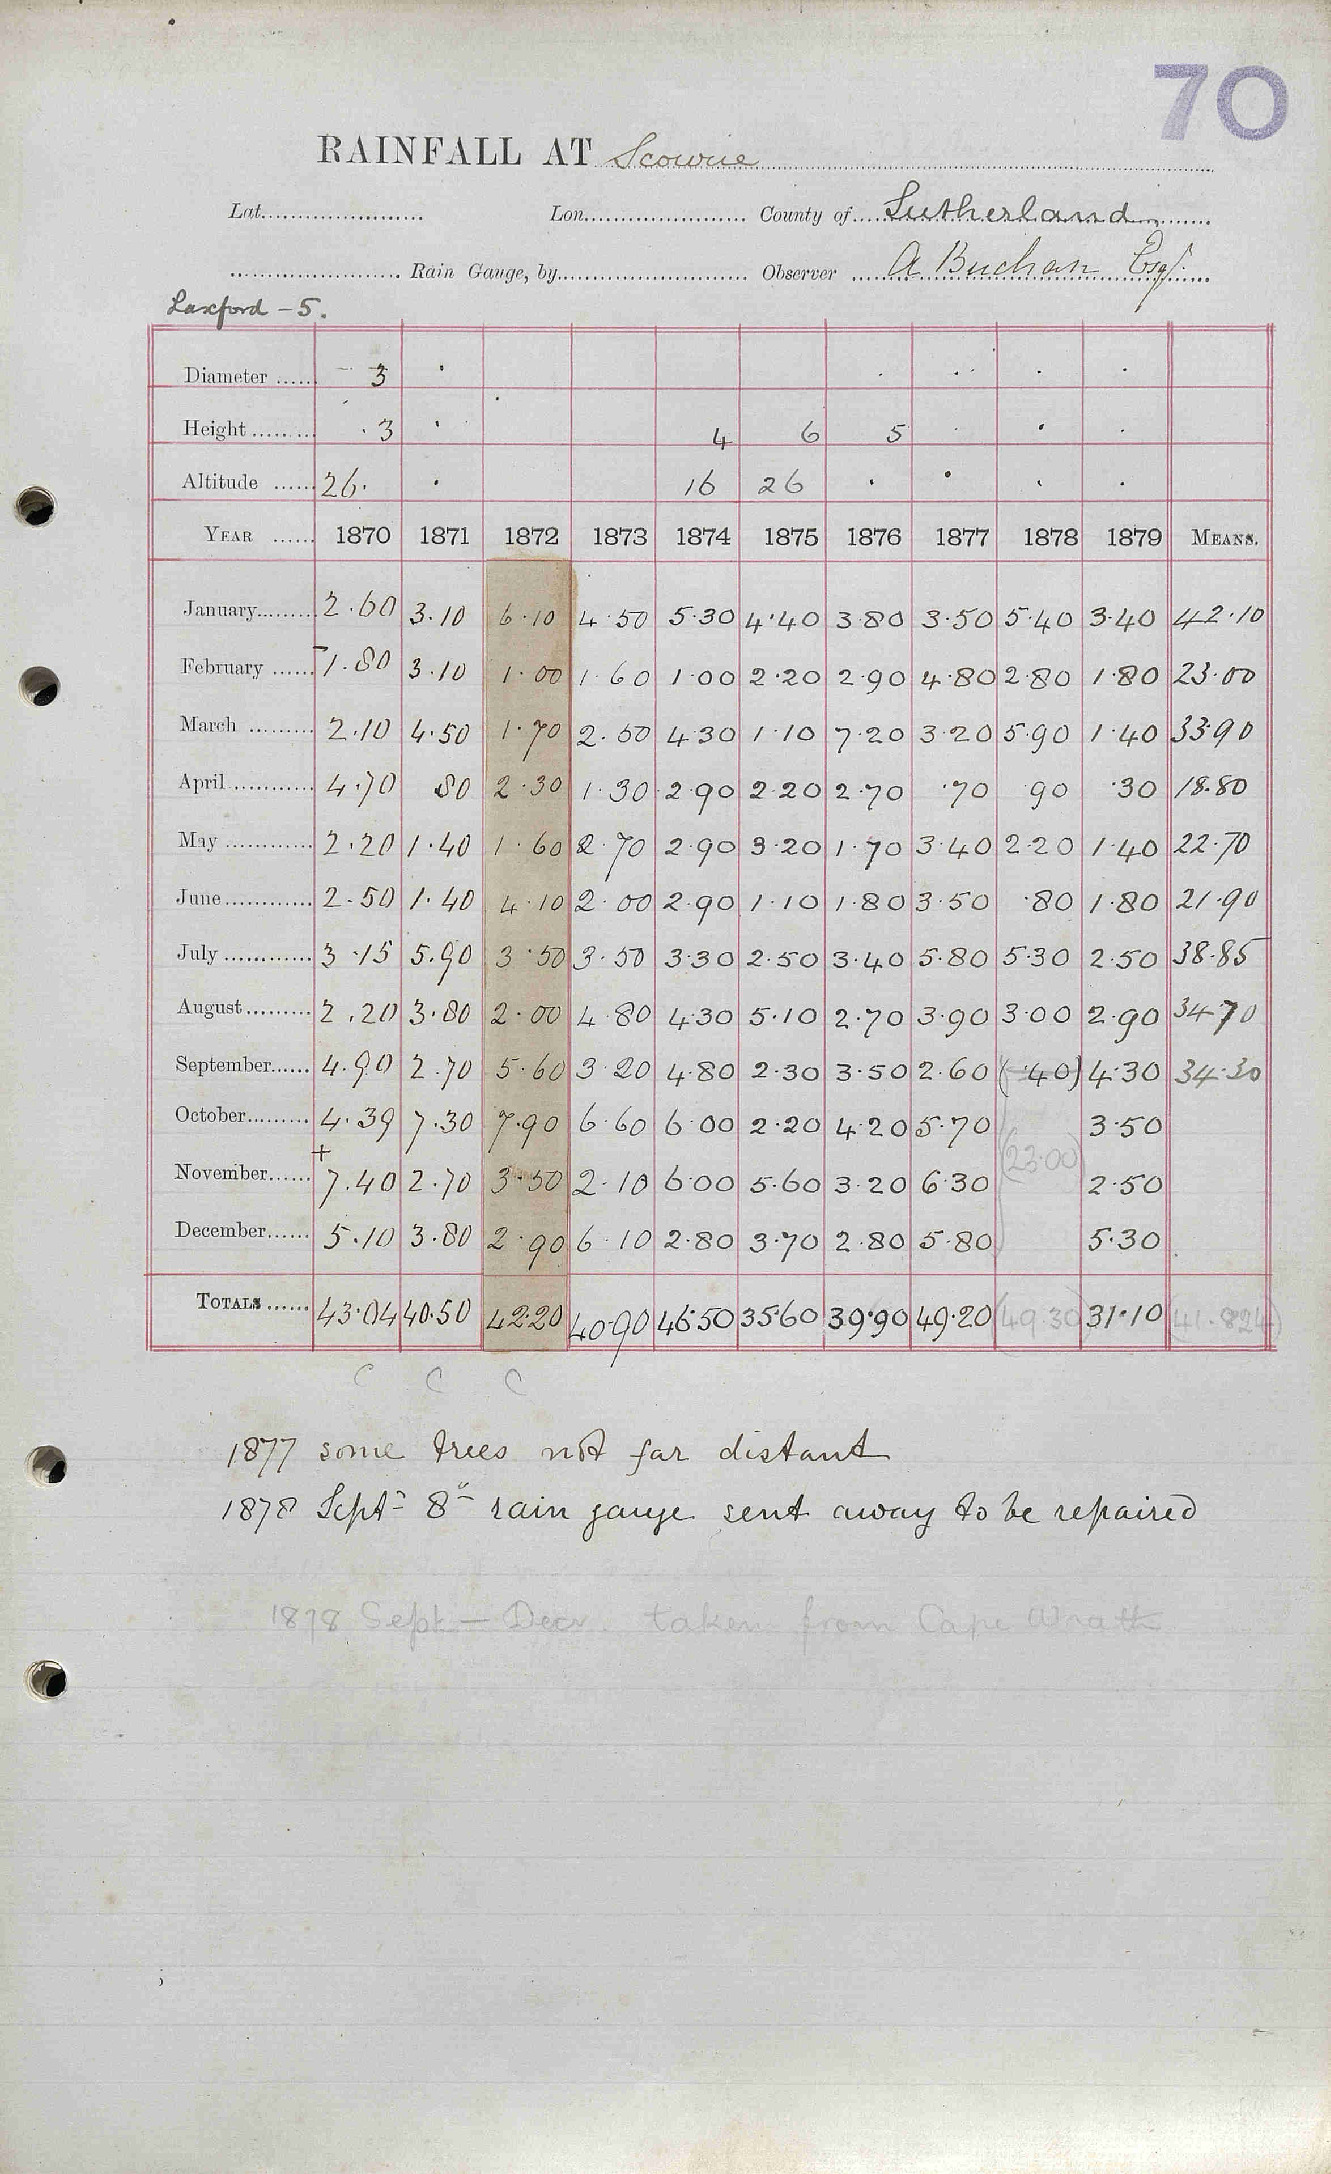 70
RAINFALL AT Scourie
Lat. Lon. County of Sutherland
Rain Gauge, by Observer A. Buchan Esqr.
Laxford - 5.
Diameter 3
Height 3 4 6 5
Altitude 26 16 26
YEAR 1870 1871 1872 1873 1874 1875 1876 1877 1878 1879 MEANS.
January 2.60 3.10 6.10 4.50 5.30 4.40 3.80 3.50 5.40 3.40 42.10
February 1.80 3.10 1.00 1.60 1.00 2.20 2.90 4.80 2.80 1.80 23.00
March 2.10 4.50 1.70 2.50 4.30 1.10 7.20 3.20 5.90 1.40 33.90
April 4.70 .80 2.30 1.30 2.90 2.20 2.70 .70 .90 .30 18.80
May 2.20 1.40 1.60 2.70 2.90 3.20 1.70 3.40 2.20 1.40 22.70
June 2.50 1.40 4.10 2.00 2.90 1.10 1.80 3.50 .80 1.80 21.90
July 3.15 5.90 3.50 3.50 3.30 2.50 3.40 5.80 5.30 2.50 38.85
August 2.20 3.80 2.00 4.80 4.30 5.10 2.70 3.90 3.00 2.90 34.70
September 4.90 2.70 5.60 3.20 4.80 2.30 3.50 2.60 (.40) 4.30 34.30
October 4.39 7.30 7.90 6.60 6.00 2.20 4.20 5.70 3.50
(23.00)
November + 7.40 2.70 3.50 2.10 6.00 5.60 3.20 6.30 2.50
December 5.10 3.80 2.90 6.10 2.80 3.70 2.80 5.80 5.30
TOTALS 43.04 40.50 42.20 40.90 46.50 35.60 39.90 49.20 (49.30) 31.10 (41.824)
C C C
1877 some trees not far distant
1878 Sept. 8th rain gauge sent away to be repaired
1878 Sept. — Decr. taken from Cape Wrath